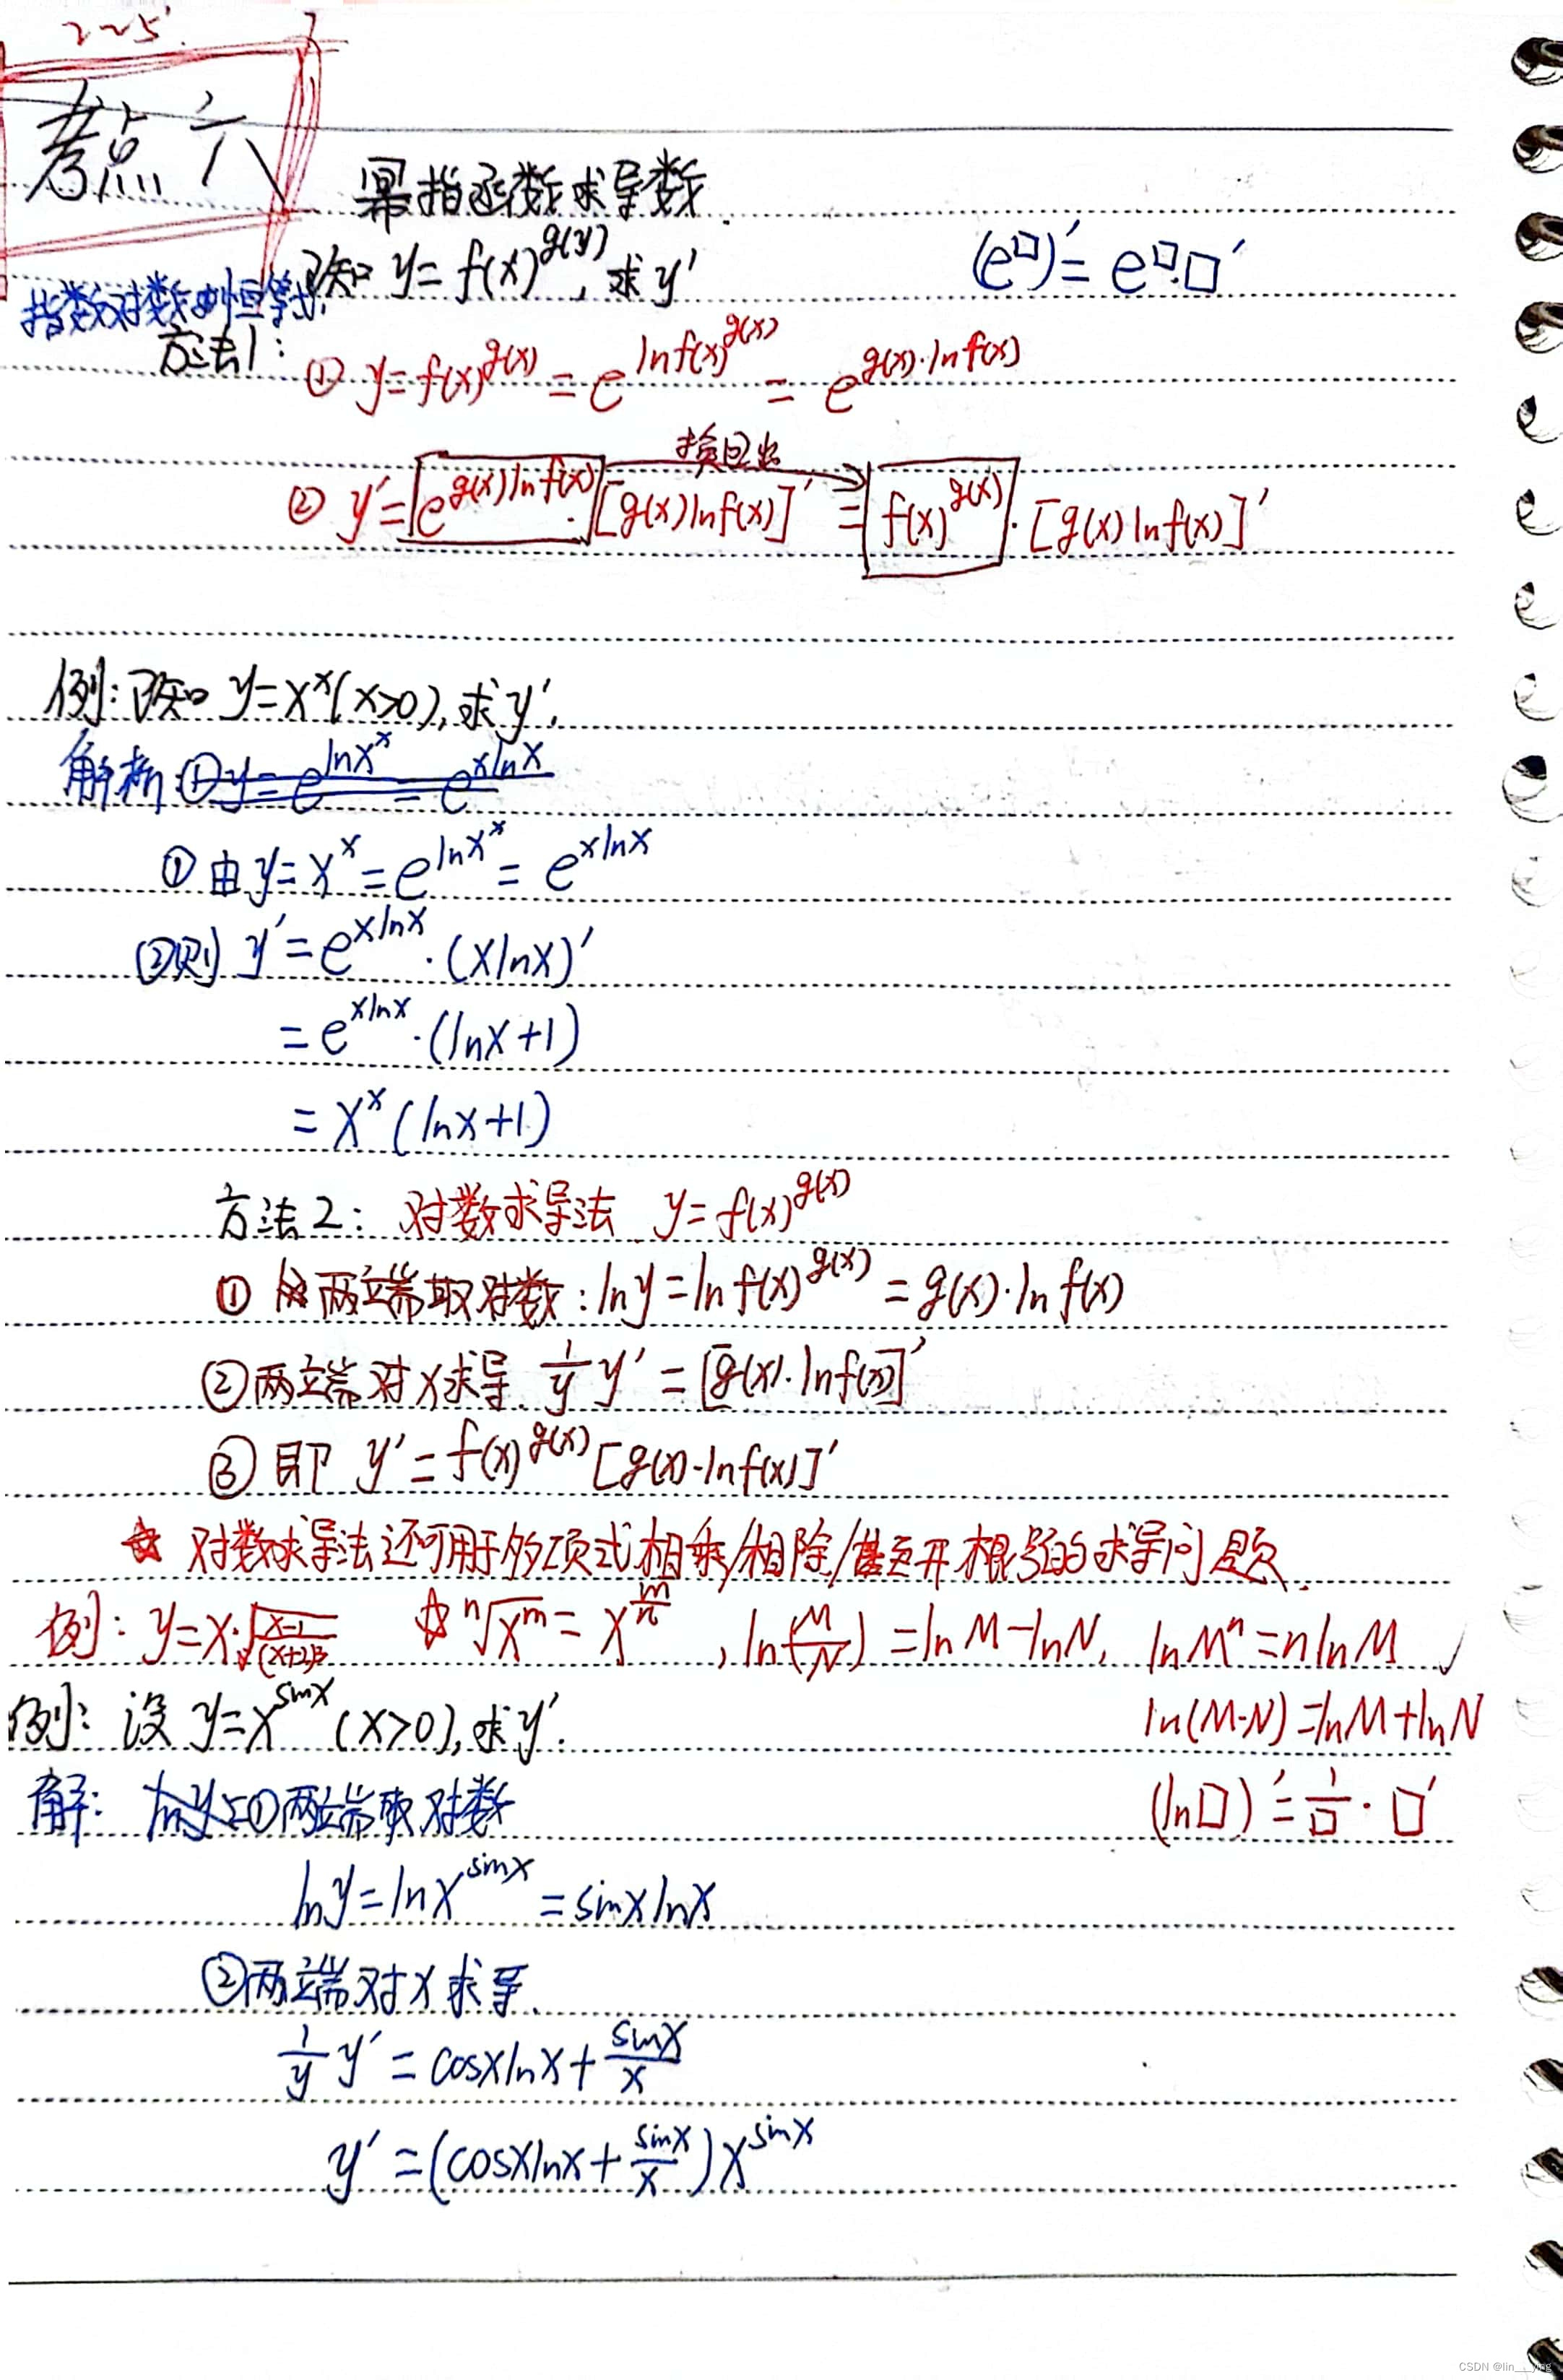 2~5'
考点六
幂指函数求导数.
已知 y=f(x)^g(y), 求y'
(e^□)'=e^□·□'
指数对数的恒等式.
方法1:
① y=f(x)^g(x)=e^lnf(x)^g(x)=e^g(x)·lnf(x)
② y'=e^g(x)lnf(x)·[g(x)lnf(x)]'=f(x)^g(x)·[g(x)lnf(x)]'
换回出
例:已知 y=x^x(x>0),求y'.
解析:①y=e^lnx^x=e^xlnx
①由y=x^x=e^lnx^x=e^xlnx
②则 y'=e^xlnx·(xlnx)'
=e^xlnx·(lnx+1)
=x^x(lnx+1)
方法2: 对数求导法 y=f(x)^g(x)
① 两端取对数:lny=lnf(x)^g(x)=g(x)·lnf(x)
②两端对x求导 1/y y'=[g(x)·lnf(x)]'
③即 y'=f(x)^g(x)[g(x)·lnf(x)]'
☆ 对数求导法还可用于多项式相乘/相除/甚至开根号的求导问题.
例: y=x·√(x-1)/(x+2)^3 ☆ ⁿ√x^m=x^m/n, ln(M/N)=lnM-lnN, lnM^n=nlnM ✓
例: 设 y=x^sinx (x>0),求y'.
ln(M·N)=lnM+lnN
解: lny=①两端取对数
(ln□)'=1/□·□'
lny=lnx^sinx=sinxlnx
②两端对x求导.
1/y y'=cosxlnx+sinx/x
y'=(cosxlnx+sinx/x)x^sinx